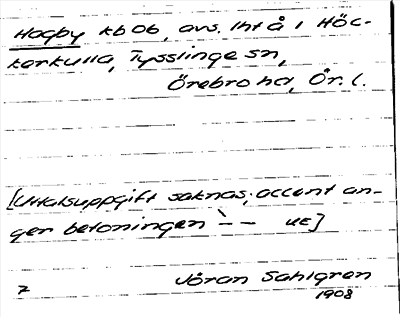 Hagby kb 06, avs. lht å 1 Höc-
kerkulla, Tysslinge sn,
Örebro hd, Ör. l.
[Uttalsuppgift saknas; accent an-
ger betoningen `– – UE]
Jöran Sahlgren
2 1908